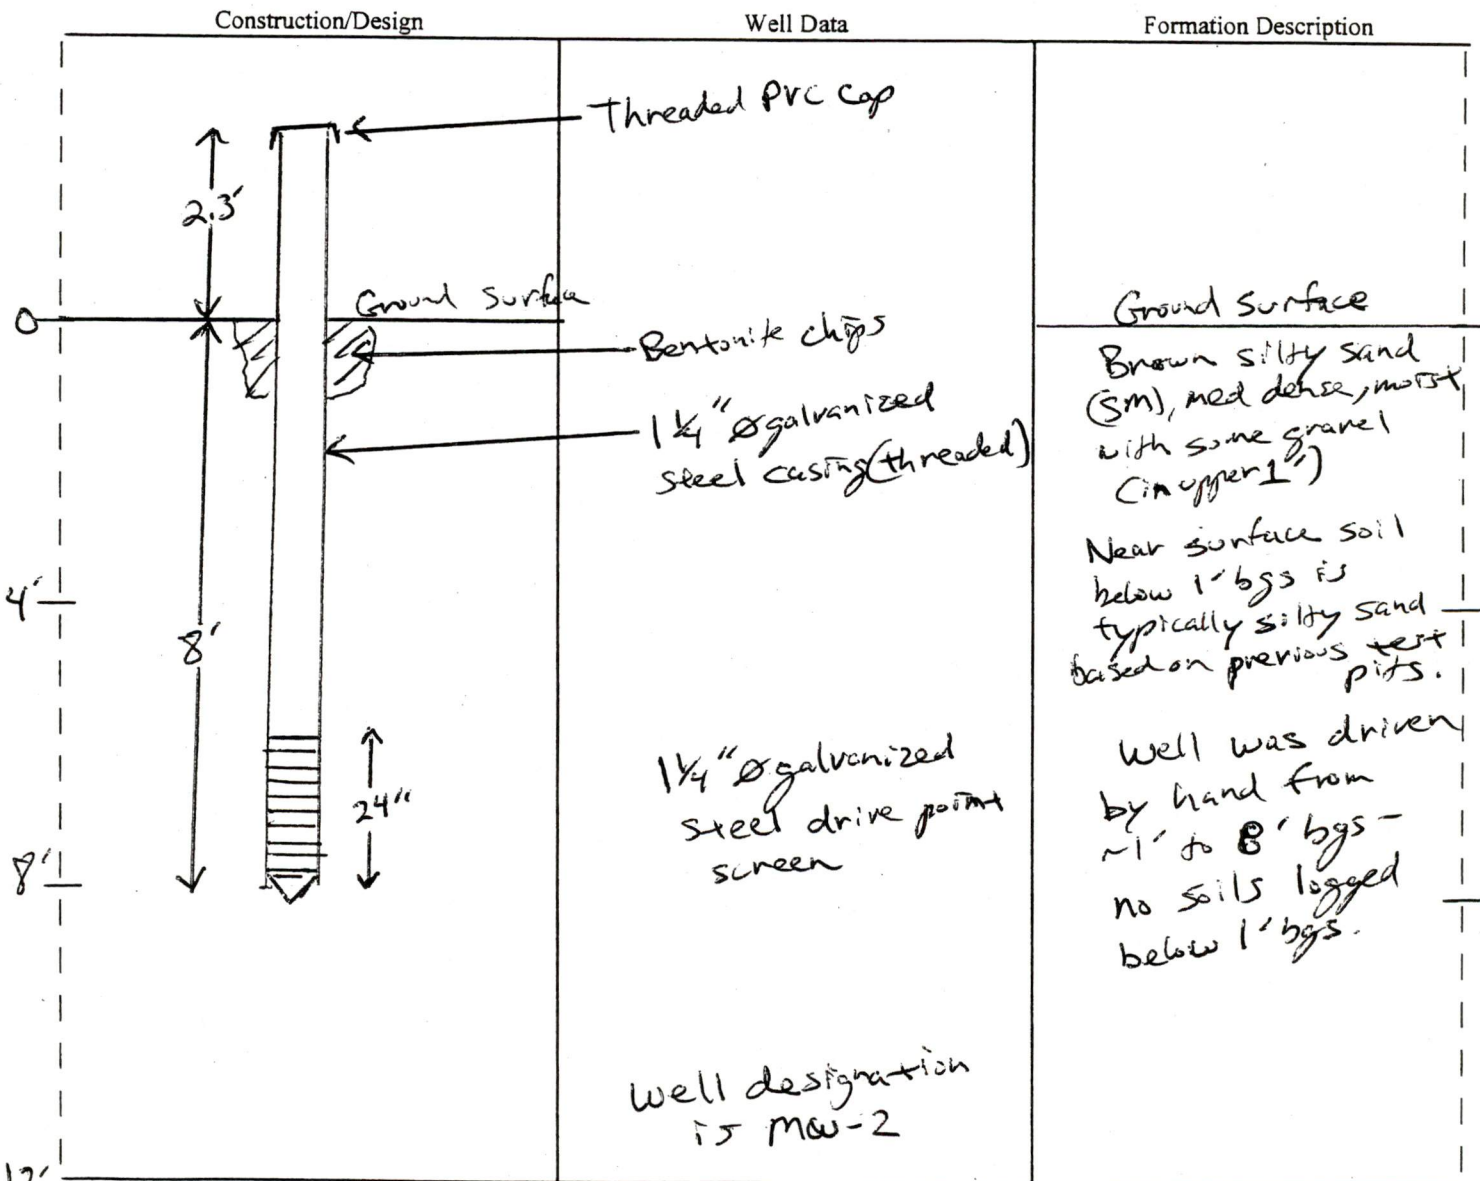 Construction/Design
Well Data
Formation Description
Threaded PVC Cap
2.3'
Ground Surface
0
Bentonite chips
1 1/4" ø galvanized
steel casing (threaded)
4'
8'
24"
8'
1 1/4" ø galvanized
steel drive point
screen
Well designation
is MW-2
12'
Ground Surface
Brown silty sand
(SM), med dense, moist
with some gravel
(in upper 1')
Near surface soil
below 1' bgs is
typically silty sand
based on previous test
pits.
Well was driven
by hand from
~1' to 8' bgs -
no soils logged
below 1' bgs.